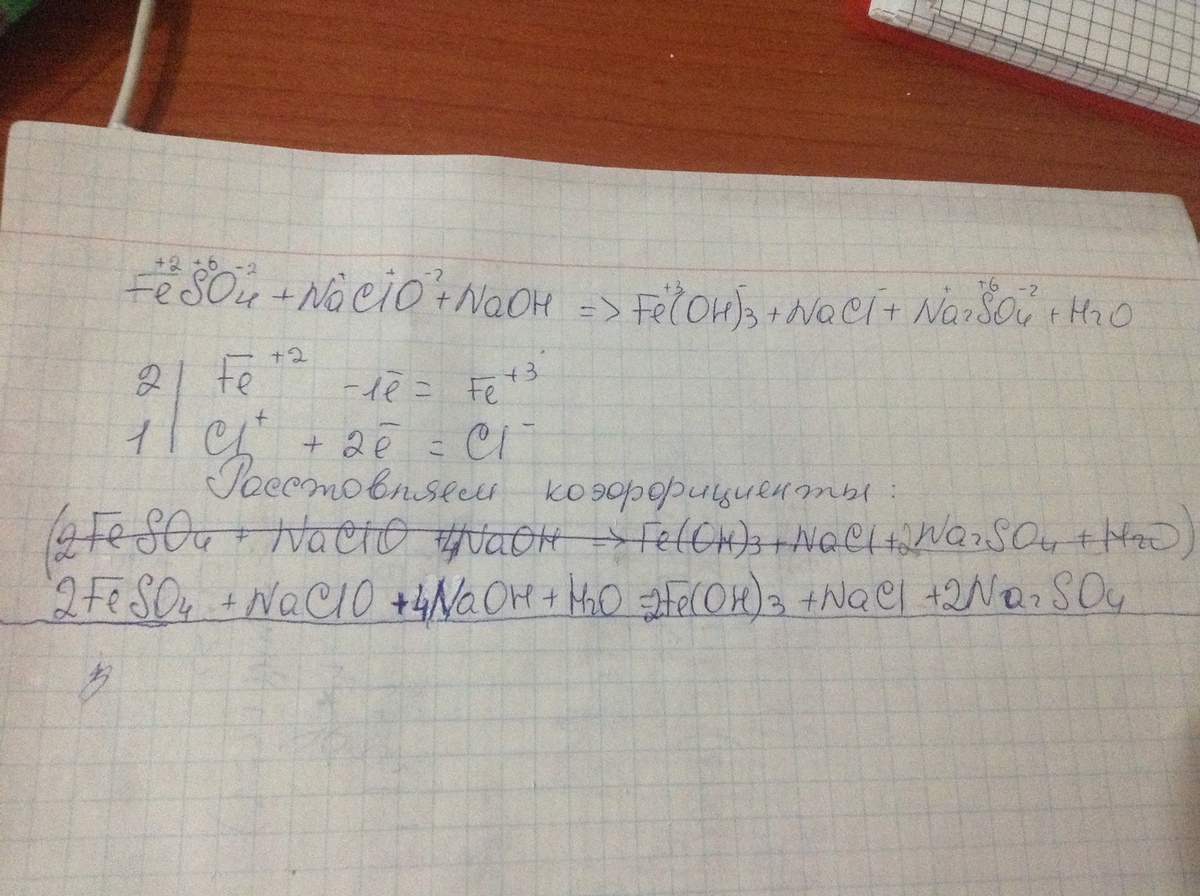 +2 +6 -2 + + -2 +3 - - + +6 -2
FeSO4 + NaClO + NaOH => Fe(OH)3 + NaCl + Na2SO4 + H2O
2 | Fe+2 -1ē = Fe+3
1 | Cl+ + 2ē = Cl-
Расставляем коэффициенты:
(2FeSO4 + NaClO +4NaOH -> Fe(OH)3 + NaCl + 2Na2SO4 + H2O)
2FeSO4 + NaClO +4NaOH + H2O =2Fe(OH)3 + NaCl + 2Na2SO4